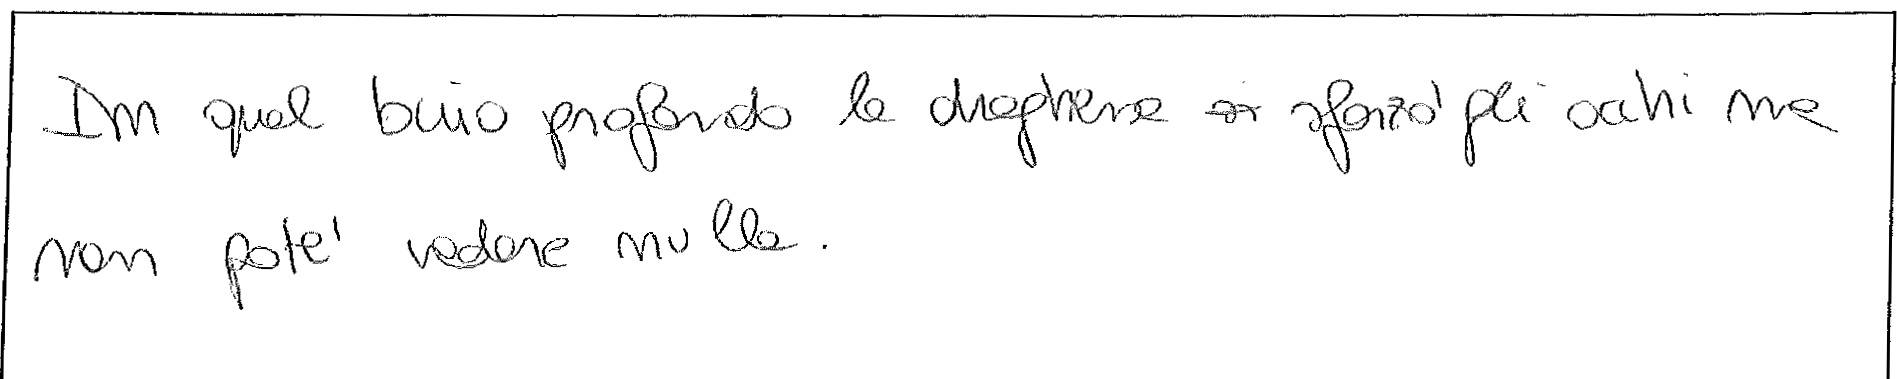 In quel buio profondo la draghessa si sforzò gli occhi ma
non poté vedere nulla.